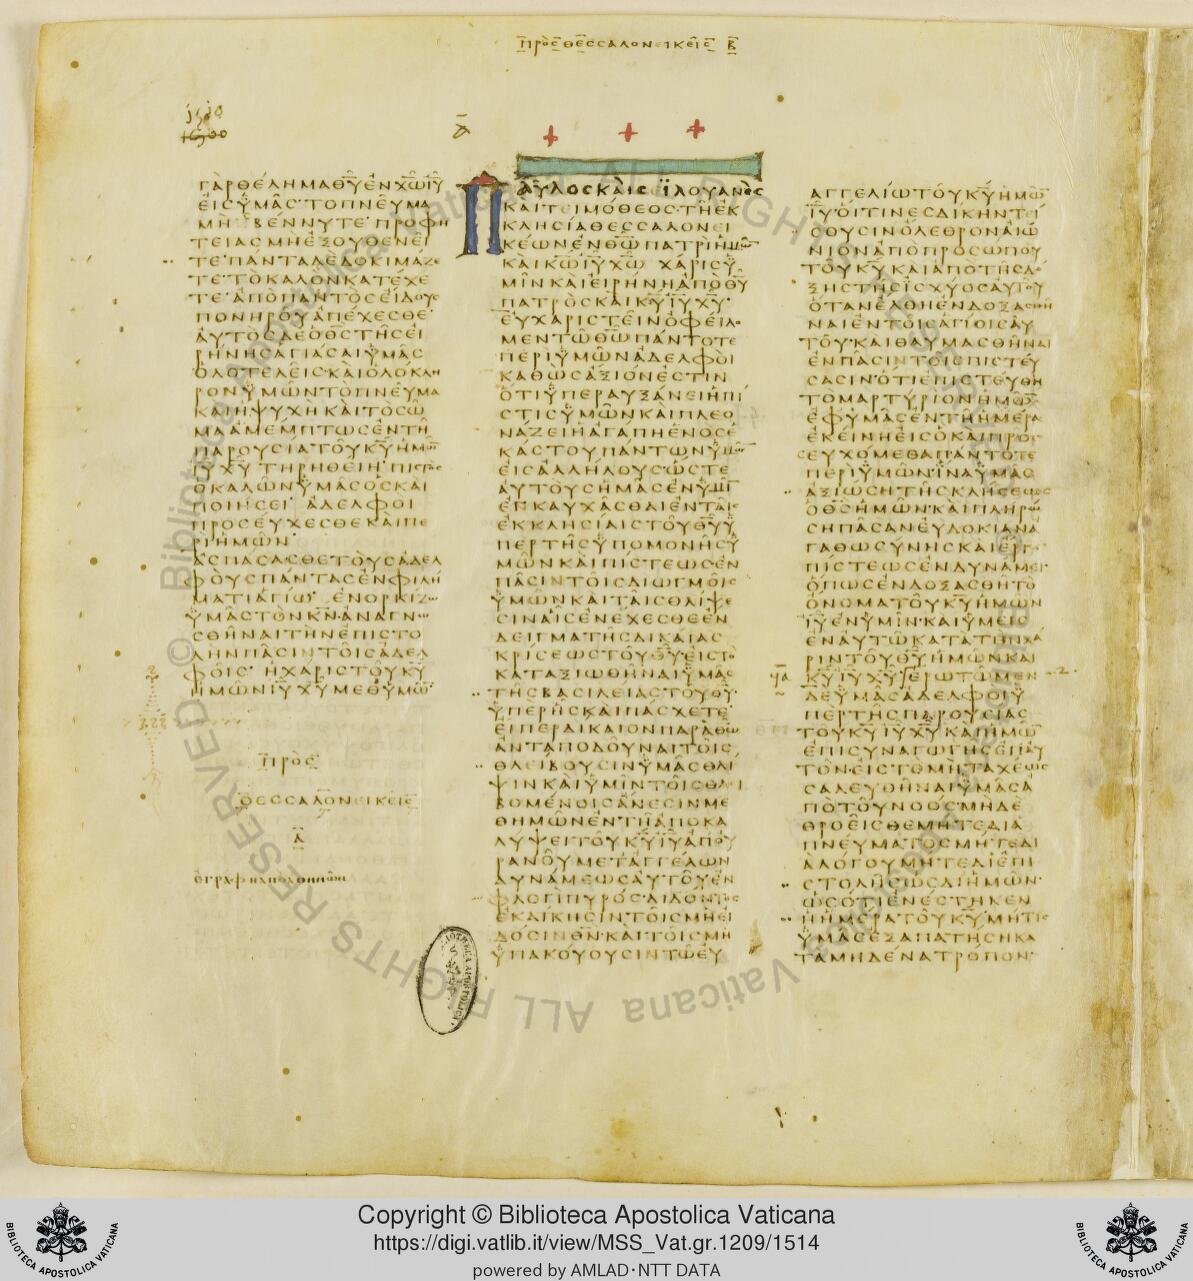 ΠΡΟϹ ΘΕϹϹΑΛΟΝΕΙΚΕΙϹ Β̅
Α̅
ΓΑΡΘΕΛΗΜΑΘ̅Υ̅ΕΝΧ̅Ω̅Ι̅Υ̅
ΕΙϹΥΜΑϹ·ΤΟΠΝΕΥΜΑ
ΜΗΖΒΕΝΝΥΤΕ·ΠΡΟΦΗ
ΤΕΙΑϹΜΗΕΞΟΥΘΕΝΕΙ
ΤΕ·ΠΑΝΤΑΔΕΔΟΚΙΜΑΖΕ
ΤΕ·ΤΟΚΑΛΟΝΚΑΤΕΧΕ
ΤΕ·ΑΠΟΠΑΝΤΟϹΕΙΔΟΥϹ
ΠΟΝΗΡΟΥΑΠΕΧΕϹΘΕ·
ΑΥΤΟϹΔΕΟΘ̅Ϲ̅ΤΗϹΕΙ
ΡΗΝΗϹΑΓΙΑϹΑΙΥΜΑϹ
ΟΛΟΤΕΛΕΙϹ·ΚΑΙΟΛΟΚΛΗ
ΡΟΝΥΜΩΝΤΟΠΝΕΥΜΑ
ΚΑΙΗΨΥΧΗΚΑΙΤΟϹΩ
ΜΑΑΜΕΜΠΤΩϹΕΝΤΗ
ΠΑΡΟΥϹΙΑΤΟΥΚ̅Υ̅ΗΜΩ̅
Ι̅Υ̅Χ̅Υ̅ΤΗΡΗΘΕΙΗ·ΠΙϹΤΟϹ
ΟΚΑΛΩΝΥΜΑϹΟϹΚΑΙ
ΠΟΙΗϹΕΙ·ΑΔΕΛΦΟΙ
ΠΡΟϹΕΥΧΕϹΘΕΚΑΙΠΕ
ΡΙΗΜΩΝ·
ΑϹΠΑϹΑϹΘΕΤΟΥϹΑΔΕΛ
ΦΟΥϹΠΑΝΤΑϹΕΝΦΙΛΗ
ΜΑΤΙΑΓΙΩ·ΕΝΟΡΚΙΖΩ
ΥΜΑϹΤΟΝΚ̅Ν̅ΑΝΑΓΝΩ
ϹΘΗΝΑΙΤΗΝΕΠΙϹΤΟ
ΛΗΝΠΑϹΙΝΤΟΙϹΑΔΕΛ
ΦΟΙϹ·ΗΧΑΡΙϹΤΟΥΚ̅Υ̅
ΗΜΩΝΙ̅Υ̅Χ̅Υ̅ΜΕΘΥΜΩ̅
ΠΡΟϹ
ΘΕϹϹΑΛΟΝΕΙΚΕΙϹ
Α̅
ΠΑΥΛΟϹΚΑΙϹΙΛΟΥΑΝΟϹ
ΚΑΙΤΕΙΜΟΘΕΟϹ·ΤΗΕΚ
ΚΛΗϹΙΑΘΕϹϹΑΛΟΝΕΙ
ΚΕΩΝΕΝΘ̅Ω̅ΠΑΤΡΙΗΜΩ̅
ΚΑΙΚ̅Ω̅Ι̅Υ̅Χ̅Ω̅ ΧΑΡΙϹΥ
ΜΙΝΚΑΙΕΙΡΗΝΗΑΠΟΘ̅Υ̅
ΠΑΤΡΟϹΚΑΙΚ̅Υ̅Ι̅Υ̅Χ̅Υ̅·
ΕΥΧΑΡΙϹΤΕΙΝΟΦΕΙΛΟ
ΜΕΝΤΩΘ̅Ω̅ΠΑΝΤΟΤΕ
ΠΕΡΙΥΜΩΝΑΔΕΛΦΟΙ
ΚΑΘΩϹΑΞΙΟΝΕϹΤΙΝ
ΟΤΙΥΠΕΡΑΥΞΑΝΕΙΗΠΙ
ϹΤΙϹΥΜΩΝΚΑΙΠΛΕΟ
ΝΑΖΕΙΗΑΓΑΠΗΕΝΟϹΕ
ΚΑϹΤΟΥΠΑΝΤΩΝΥΜΩ̅
ΕΙϹΑΛΛΗΛΟΥϹΩϹΤΕ
ΑΥΤΟΥϹΗΜΑϹΕΝΥΜΙ̅
ΕΝΚΑΥΧΑϹΘΑΙΕΝΤΑΙϹ
ΕΚΚΛΗϹΙΑΙϹΤΟΥΘ̅Υ̅Υ
ΠΕΡΤΗϹΥΠΟΜΟΝΗϹΥ
ΜΩΝΚΑΙΠΙϹΤΕΩϹΕΝ
ΠΑϹΙΝΤΟΙϹΔΙΩΓΜΟΙϹ
ΥΜΩΝΚΑΙΤΑΙϹΘΛΙΨΕ
ϹΙΝΑΙϹΕΝΕΧΕϹΘΕΕΝ
ΔΕΙΓΜΑΤΗϹΔΙΚΑΙΑϹ
ΚΡΙϹΕΩϹΤΟΥΘ̅Υ̅·ΕΙϹΤΟ
ΚΑΤΑΞΙΩΘΗΝΑΙΥΜΑϹ
ΤΗϹΒΑϹΙΛΕΙΑϹΤΟΥΘ̅Υ̅·
ΥΠΕΡΗϹΚΑΙΠΑϹΧΕΤΕ
ΕΙΠΕΡΔΙΚΑΙΟΝΠΑΡΑΘ̅Ω̅
ΑΝΤΑΠΟΔΟΥΝΑΙΤΟΙϹ
ΘΛΕΙΒΟΥϹΙΝΥΜΑϹΘΛΙ
ΨΙΝΚΑΙΥΜΙΝΤΟΙϹΘΛΕΙ
ΒΟΜΕΝΟΙϹΑΝΕϹΙΝΜΕ
ΘΗΜΩΝΕΝΤΗΑΠΟΚΑ
ΛΥΨΕΙΤΟΥΚ̅Υ̅Ι̅Υ̅ΑΠΟΥ
ΡΑΝΟΥΜΕΤΑΓΓΕΛΩΝ
ΔΥΝΑΜΕΩϹΑΥΤΟΥΕΝ
ΦΛΟΓΙΠΥΡΟϹ·ΔΙΔΟΝΤΟϹ
ΕΚΔΙΚΗϹΙΝΤΟΙϹΜΗΕΙ
ΔΟϹΙΝΘ̅Ν̅·ΚΑΙΤΟΙϹΜΗ
ΥΠΑΚΟΥΟΥϹΙΝΤΩΕΥ
ΑΓΓΕΛΙΩΤΟΥΚ̅Υ̅ΗΜΩ̅
Ι̅Υ̅·ΟΙΤΙΝΕϹΔΙΚΗΝΤΕΙ
ϹΟΥϹΙΝΟΛΕΘΡΟΝΑΙΩ
ΝΙΟΝΑΠΟΠΡΟϹΩΠΟΥ
ΤΟΥΚ̅Υ̅ΚΑΙΑΠΟΤΗϹΔΟ
ΞΗϹΤΗϹΙϹΧΥΟϹΑΥΤΟΥ
ΟΤΑΝΕΛΘΗΕΝΔΟΞΑϹΘΗ
ΝΑΙΕΝΤΟΙϹΑΓΙΟΙϹΑΥ
ΤΟΥ·ΚΑΙΘΑΥΜΑϹΘΗΝΑΙ
ΕΝΠΑϹΙΝΤΟΙϹΠΙϹΤΕΥ
ϹΑϹΙΝ·ΟΤΙΕΠΙϹΤΕΥΘΗ
ΤΟΜΑΡΤΥΡΙΟΝΗΜΩ̅
ΕΦΥΜΑϹΕΝΤΗΗΜΕΡΑ
ΕΚΕΙΝΗΕΙϹΟΚΑΙΠΡΟϹ
ΕΥΧΟΜΕΘΑΠΑΝΤΟΤΕ
ΠΕΡΙΥΜΩΝ·ΙΝΑΥΜΑϹ
ΑΞΙΩϹΗΤΗϹΚΛΗϹΕΩϹ
ΟΘ̅Ϲ̅ΗΜΩΝ·ΚΑΙΠΛΗΡΩ
ϹΗΠΑϹΑΝΕΥΔΟΚΙΑΝΑ
ΓΑΘΩϹΥΝΗϹΚΑΙΕΡΓΟ
ΠΙϹΤΕΩϹΕΝΔΥΝΑΜΕΙ·
ΟΠΩϹΕΝΔΟΞΑϹΘΗΤΟ
ΟΝΟΜΑΤΟΥΚ̅Υ̅ΗΜΩΝ
Ι̅Υ̅ΕΝΥΜΙΝ·ΚΑΙΥΜΕΙϹ
ΕΝΑΥΤΩΚΑΤΑΤΗΝΧΑ
ΡΙΝΤΟΥΘ̅Υ̅ΗΜΩΝΚΑΙ
Κ̅Υ̅Ι̅Υ̅Χ̅Υ̅·ΕΡΩΤΩΜΕΝ
ΔΕΥΜΑϹΑΔΕΛΦΟΙΥ
ΠΕΡΤΗϹΠΑΡΟΥϹΙΑϹ
ΤΟΥΚ̅Υ̅Ι̅Υ̅Χ̅Υ̅ΚΑΙΗΜΩ̅
ΕΠΙϹΥΝΑΓΩΓΗϹΕΠΑΥ
ΤΟΝ·ΕΙϹΤΟΜΗΤΑΧΕΩϹ
ϹΑΛΕΥΘΗΝΑΙΥΜΑϹΑ
ΠΟΤΟΥΝΟΟϹ·ΜΗΔΕ
ΘΡΟΕΙϹΘΕΜΗΤΕΔΙΑ
ΠΝΕΥΜΑΤΟϹΜΗΤΕΔΙ
ΑΛΟΓΟΥΜΗΤΕΔΙΕΠΙ
ϹΤΟΛΗϹΩϹΔΙΗΜΩΝ·
ΩϹΟΤΙΕΝΕϹΤΗΚΕΝ
ΗΗΜΕΡΑΤΟΥΚ̅Υ̅·ΜΗΤΙϹ
ΥΜΑϹΕΞΑΠΑΤΗϹΗΚΑ
ΤΑΜΗΔΕΝΑΤΡΟΠΟΝ·
© Biblioteca Apostolica Vaticana ALL RIGHTS RESERVED
Copyright © Biblioteca Apostolica Vaticana
https://digi.vatlib.it/view/MSS_Vat.gr.1209/1514
powered by AMLAD·NTT DATA
BIBLIOTECA APOSTOLICA VATICANA
BIBLIOTECA APOSTOLICA VATICANA